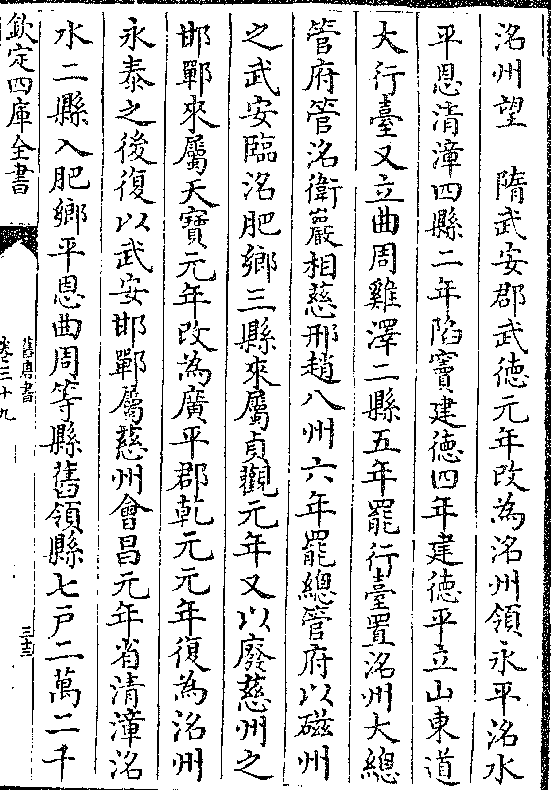 洺州望　隋武安郡武德元年改為洺州領永平洺水
平恩清漳四縣二年陷竇建德四年建德平立山東道
大行臺又立曲周雞澤二縣五年罷行臺置洺州大總
管府管洺衛巖相慈邢趙八州六年罷總管府以磁州
之武安臨洺肥鄉三縣來屬貞觀元年又以廢慈州之
邯鄲來屬天寶元年改為廣平郡乾元元年復為洺州
永泰之後復以武安邯鄲屬慈州會昌元年省清漳洺
水二縣入肥鄉平恩曲周等縣舊領縣七戶二萬二千
欽定四庫全書
舊唐書
卷三十九
三十三